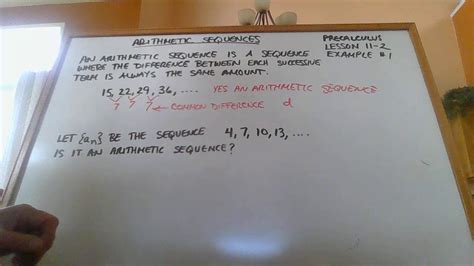 ARITHMETIC SEQUENCES
PRECALCULUS
LESSON 11-2
EXAMPLE #1
AN ARITHMETIC SEQUENCE IS A SEQUENCE
WHERE THE DIFFERENCE BETWEEN EACH SUCCESSIVE
TERM IS ALWAYS THE SAME AMOUNT.
15, 22, 29, 36, .... YES AN ARITHMETIC SEQUENCE
7 7 7 ← COMMON DIFFERENCE d
LET {aₙ} BE THE SEQUENCE 4, 7, 10, 13, ....
IS IT AN ARITHMETIC SEQUENCE?